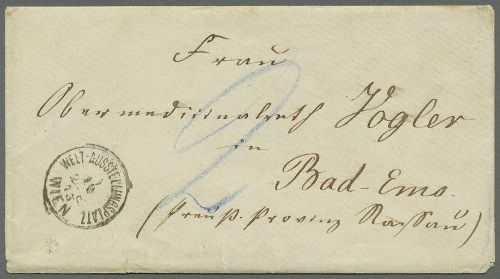 Frau
2
Obermedicinalrath Vogler
in
Bad-Ems.
(Preuß. Provinz Nassau)
WIEN WELT-AUSSTELLUNGSPLATZ